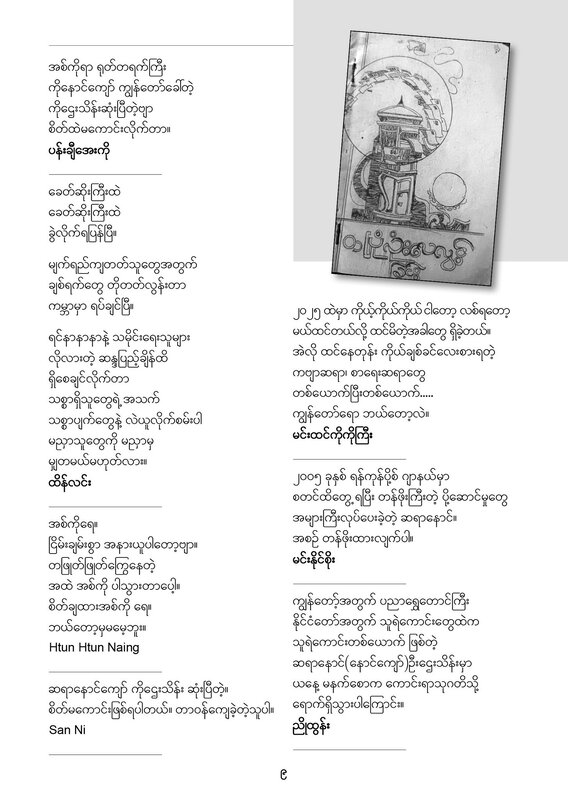 အစ်ကိုရာ ရုတ်တရက်ကြီး
ကိုနောင်ကျော် ကျွန်တော်ခေါ်တဲ့
ကိုဌေးသိန်းဆုံးပြီတဲ့ဗျာ
စိတ်ထဲမကောင်းလိုက်တာ။
ပန်းချီအေးကို
ခေတ်ဆိုးကြီးထဲ
ခေတ်ဆိုးကြီးထဲ
ခွဲလိုက်ရပြန်ပြီ။
မျက်ရည်ကျတတ်သူတွေအတွက်
ချစ်ရက်တွေ တိုတတ်လွန်းတာ
ကမ္ဘာမှာ ရပ်ချင်ပြီ။
ရင်နာနာနာနဲ့ သမိုင်းရေးသူများ
လိုလားတဲ့ ဆန္ဒပြည့်ချိန်ထိ
ရှိစေချင်လိုက်တာ
သစ္စာရှိသူတွေရဲ့အသက်
သစ္စာပျက်တွေနဲ့ လဲယူလိုက်စမ်းပါ
မညှာသူတွေကို မညှာမှ
မျှတမယ်မဟုတ်လား။
ထိန်လင်း
အစ်ကိုရေ။
ငြိမ်းချမ်းစွာ အနားယူပါတော့ဗျာ။
တဖြုတ်ဖြုတ်ကြွေနေတဲ့
အထဲ အစ်ကို ပါသွားတာပေါ့။
စိတ်ချထားအစ်ကို ရေ။
ဘယ်တော့မှမမေ့ဘူး။
Htun Htun Naing
ဆရာနောင်ကျော် ကိုဌေးသိန်း ဆုံးပြီတဲ့။
စိတ်မကောင်းဖြစ်ရပါတယ်။ တာဝန်ကျေခဲ့တဲ့သူပါ။
San Ni
၂၀၂၅ ထဲမှာ ကိုယ့်ကိုယ်ကိုယ် ငါတော့ လစ်ရတော့
မယ်ထင်တယ်လို့ ထင်မိတဲ့အခါတွေ ရှိခဲ့တယ်။
အဲလို ထင်နေတုန်း ကိုယ်ချစ်ခင်လေးစားရတဲ့
ကဗျာဆရာ၊ စာရေးဆရာတွေ
တစ်ယောက်ပြီးတစ်ယောက်.....
ကျွန်တော်ရော ဘယ်တော့လဲ။
မင်းထင်ကိုကိုကြီး
၂၀၀၅ ခုနှစ် ရန်ကုန်ပို့စ် ဂျာနယ်မှာ
စတင်ထိတွေ့ ရပြီး တန်ဖိုးကြီးတဲ့ ပို့ဆောင်မှုတွေ
အများကြီးလုပ်ပေးခဲ့တဲ့ ဆရာနောင်။
အစဉ် တန်ဖိုးထားလျက်ပါ။
မင်းနိုင်စိုး
ကျွန်တော့်အတွက် ပညာရွှေတောင်ကြီး
နိုင်ငံတော်အတွက် သူရဲကောင်းတွေထဲက
သူရဲကောင်းတစ်ယောက် ဖြစ်တဲ့
ဆရာနောင်(နောင်ကျော်)ဦးဌေးသိန်းမှာ
ယနေ့ မနက်စောက ကောင်းရာသုဂတိသို့
ရောက်ရှိသွားပါကြောင်း။
ညိုထွန်း
၉